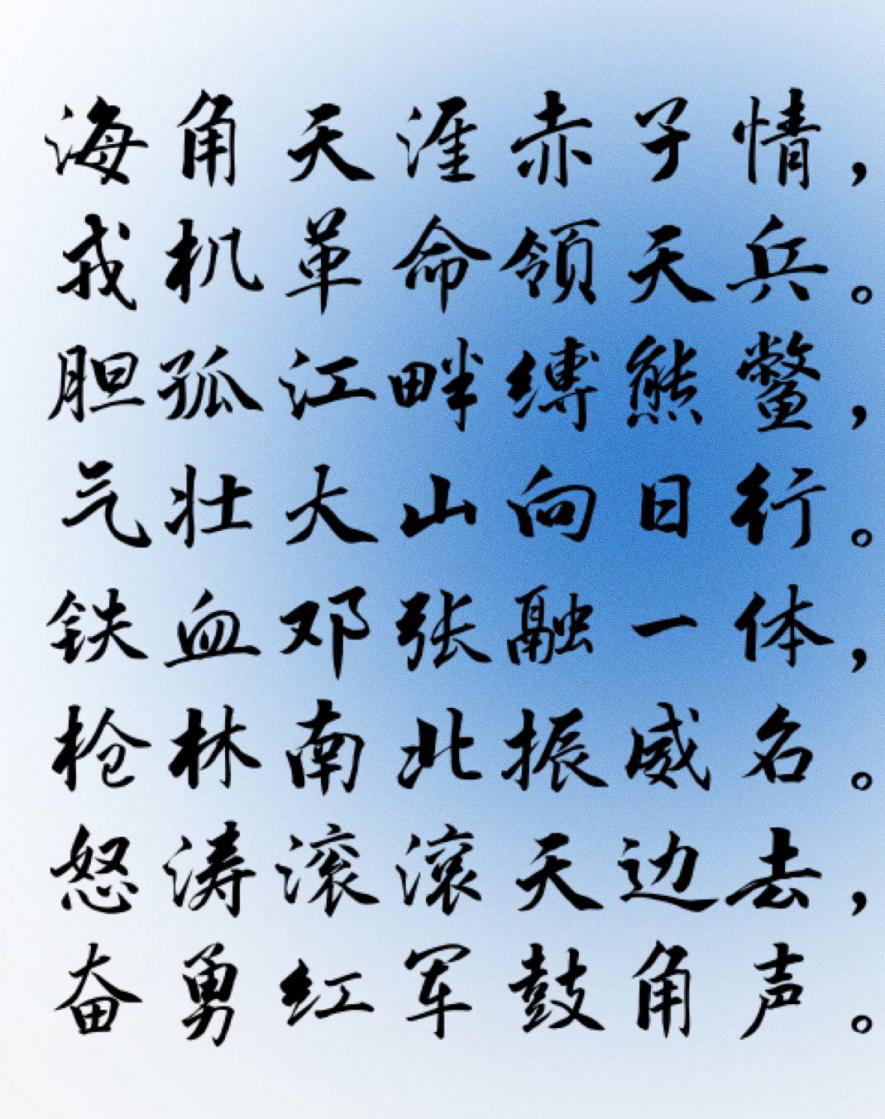 海角天涯赤子情，
我机革命领天兵。
胆孤江畔缚熊鳖，
气壮大山向日行。
铁血邓张融一体，
枪林南北振威名。
怒涛滚滚天边去，
奋勇红军鼓角声。